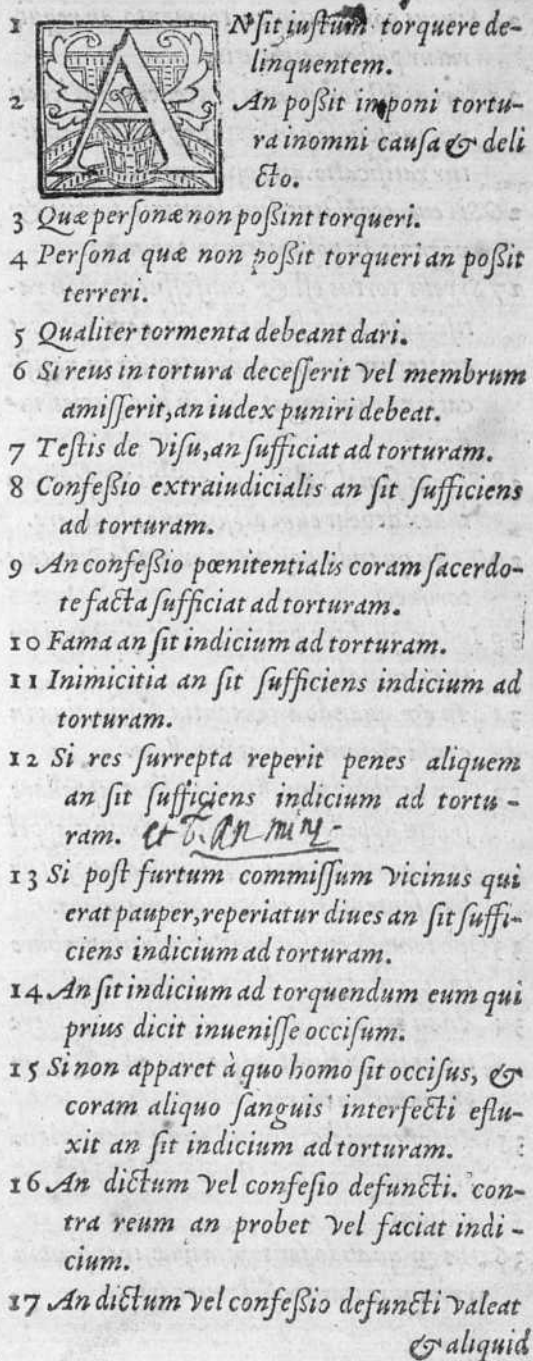 1 AN sit iustum torquere de-
linquentem.
2 An poßit imponi tortu-
ra inomni causa & deli
cto.
3 Quæ personæ non poßint torqueri.
4 Persona quæ non poßit torqueri an poßit
terreri.
5 Qualiter tormenta debeant dari.
6 Si reus in tortura decesserit vel membrum
amisserit, an iudex puniri debeat.
7 Testis de visu, an sufficiat ad torturam.
8 Confeßio extraiudicialis an sit sufficiens
ad torturam.
9 An confeßio pœnitentialis coram sacerdo-
te facta sufficiat ad torturam.
10 Fama an sit indicium ad torturam.
11 Inimicitia an sit sufficiens indicium ad
torturam.
12 Si res surrepta reperit penes aliquem
an sit sufficiens indicium ad tortu-
ram. et
13 Si post furtum commissum vicinus qui
erat pauper, reperiatur diues an sit suffi-
ciens indicium ad torturam.
14 An sit indicium ad torquendum eum qui
prius dicit inuenisse occisum.
15 Si non apparet à quo homo sit occisus, &
coram aliquo sanguis interfecti eflu-
xit an sit indicium ad torturam.
16 An dictum vel confesio defuncti. con-
tra reum an probet vel faciat indi-
cium.
17 An dictum vel confeßio defuncti valeat
& aliquid